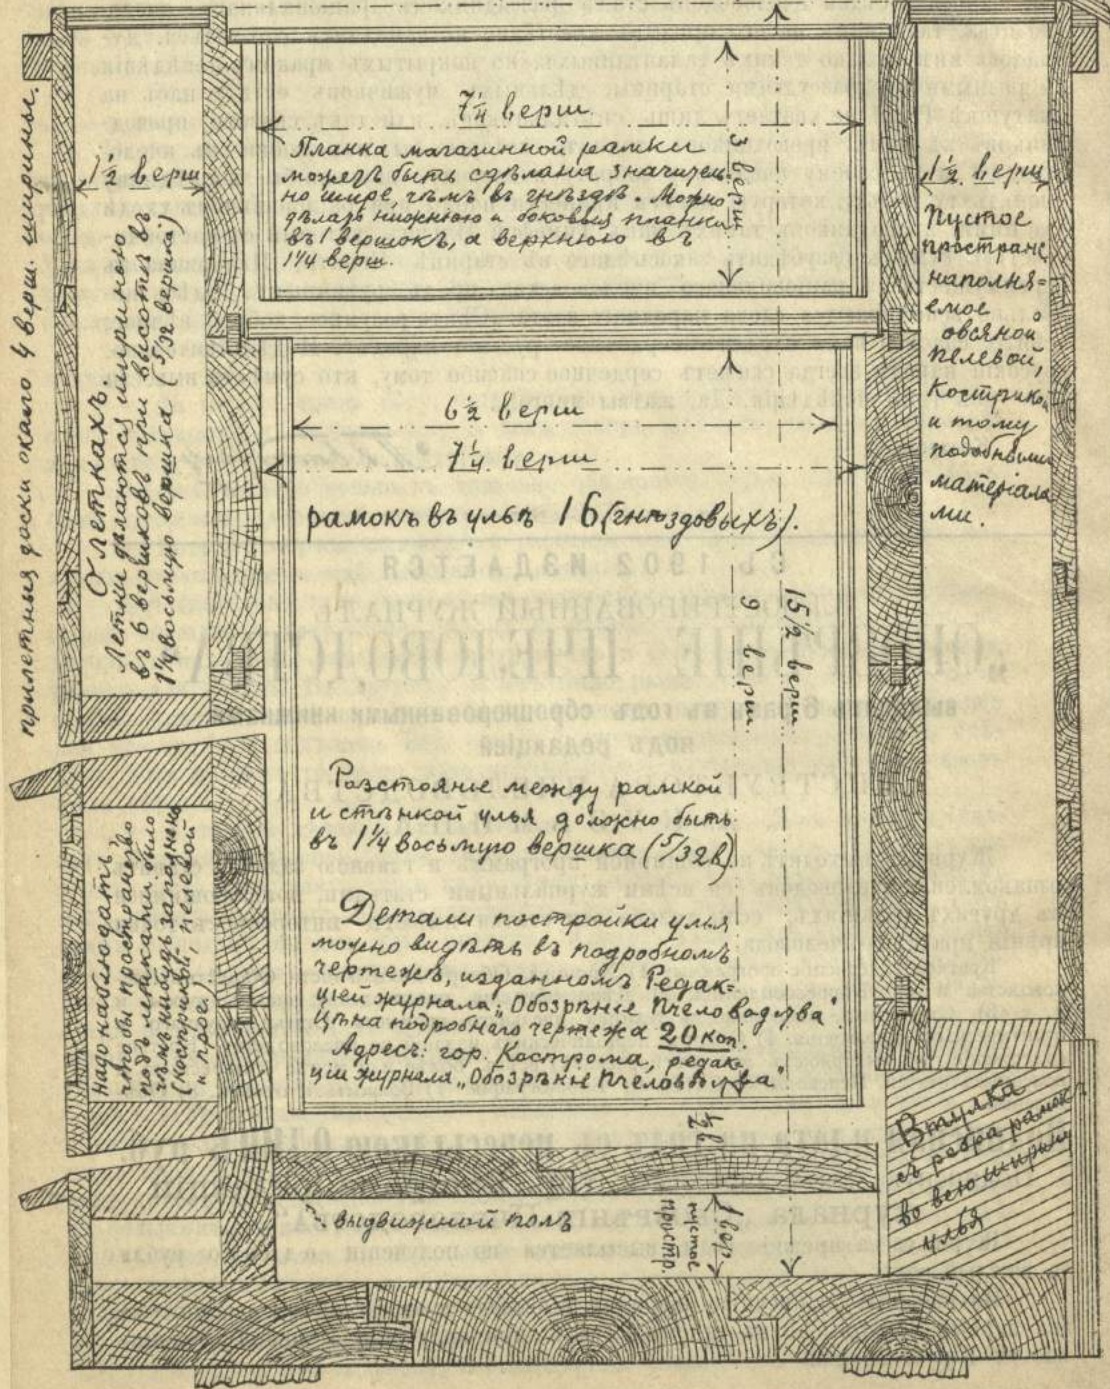 прилетныя доски около 4 верш. ширины.
1½ верш
О леткахъ
Летки дѣлаются шириною
въ 6 вершковъ при высотѣ въ
1¼ восьмую вершка (5/32 вершка)
7¼ верш
3 верш
Планка магазинной рамки
можетъ быть сдѣлана значитель
но шире, чѣмъ въ гнѣздѣ. Можно
дѣлать нижнюю и боковыя планки
въ 1 вершокъ, а верхнюю въ
1¼ верш.
1½ верш
Пустое
пространс
наполня=
емое
овсяной
пелевой,
Кострикой
и тому
подобными
матеріала
ми.
6½ верш
7¼ верш
рамокъ въ ульѣ 16 (гнѣздовыхъ).
9 верш.
15½ верш.
Разстояніе между рамкой
и стѣнкой улья должно быть
въ 1¼ восьмую вершка (5/32 в)
Детали постройки улья
можно видѣть въ подробномъ
чертежѣ, изданномъ Редак=
ціей журнала „Обозрѣніе Пчеловодства"
Цѣна подробнаго чертежа 20 коп.
Адресъ: гор. Кострома, редак
ціи журнала „Обозрѣніе Пчеловодства"
Надо наблюдать,
чтобы пространство
подъ летками было
чѣмъ нибудь заполнено
(кострикой, пелевой
и проч.)
½ в
выдвижной полъ
1 вер
пустое
простр.
Втулка
съ ребра рамокъ
во всю ширину
улья
СЪ 1902 ИЗДАЕТСЯ
ИЛЛЮСТРИРОВАННЫЙ ЖУРНАЛЪ
подъ редакціей